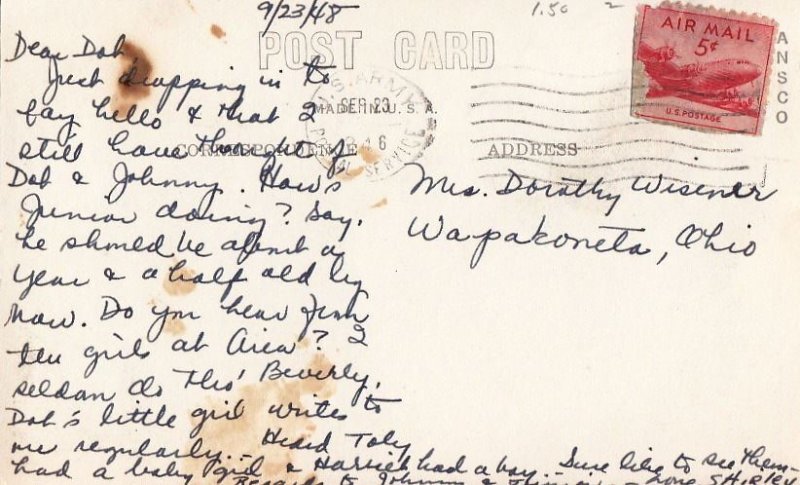 9/23/48
1.50
2
POST CARD
AIR MAIL
5¢
U.S. POSTAGE
ANSCO
U.S. ARMY
SEP 23
POSTAL SERVICE
MADE IN U. S. A.
CORRESPONDENCE
ADDRESS
Dear Dot,
Just dropping in to
say hello & that I
still have thoughts of
Dot & Johnny. How's
Junior doing? Say,
he should be about a
year & a half old by
now. Do you hear from
the girls at Area? I
seldom do Tho' Beverly,
Dot's little girl writes to
me regularly. Heard Toby
had a baby girl & Harriet had a boy. Sure like to see them—
Regards to Johnny & Junior - Love SHIRLEY
Mrs. Dorothy Wisener
Wapakoneta, Ohio